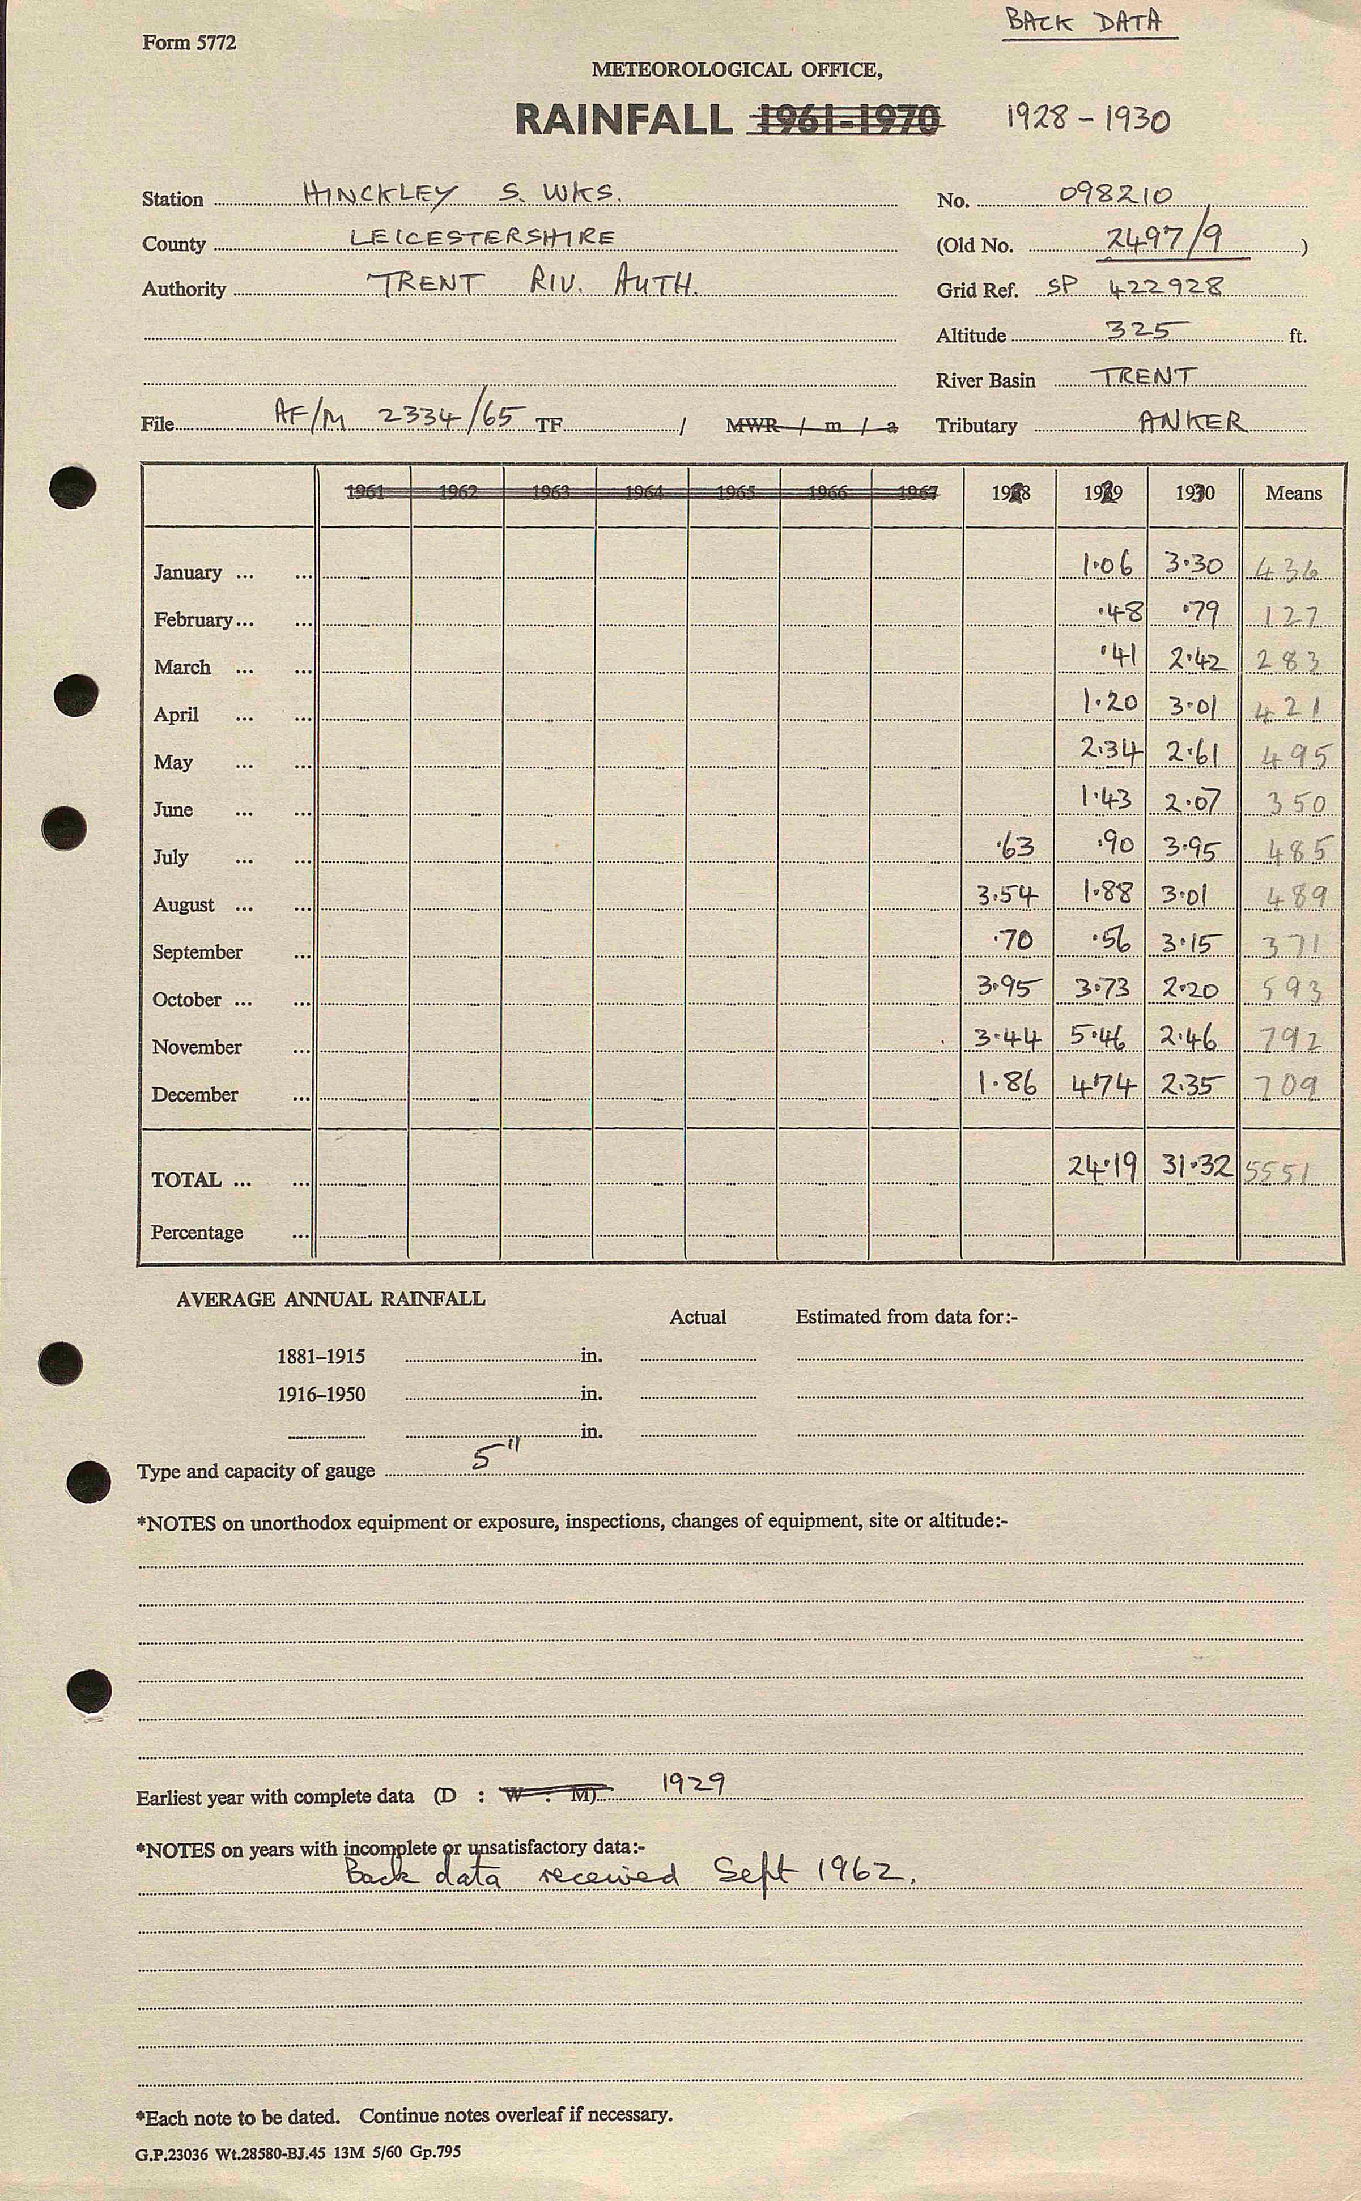 BACK DATA
Form 5772
METEOROLOGICAL OFFICE,
RAINFALL 1961-1970 1928 - 1930
Station HINCKLEY S. WKS. No. 098210
County LEICESTERSHIRE (Old No. 2497/9 )
Authority TRENT RIV. AUTH. Grid Ref. SP 422928
Altitude 325 ft.
River Basin TRENT
File AF/M 2334/65 TF / MWR / m / a Tributary ANKER
1961 1962 1963 1964 1965 1966 1967 1928 1929 1930 Means
January ... ... 1·06 3·30 436
February... ... ·48 ·79 127
March ... ... ·41 2·42 283
April ... ... 1·20 3·01 421
May ... ... 2·34 2·61 495
June ... ... 1·43 2·07 350
July ... ... ·63 ·90 3·95 485
August ... ... 3·54 1·88 3·01 489
September ... ·70 ·56 3·15 371
October ... ... 3·95 3·73 2·20 593
November ... 3·44 5·46 2·46 792
December ... 1·86 4·74 2·35 709
TOTAL ... ... 24·19 31·32 5551
Percentage ...
AVERAGE ANNUAL RAINFALL
Actual Estimated from data for:-
1881–1915 in.
1916–1950 in.
in.
Type and capacity of gauge 5"
*NOTES on unorthodox equipment or exposure, inspections, changes of equipment, site or altitude:-
Earliest year with complete data (D : W : M) 1929
*NOTES on years with incomplete or unsatisfactory data:-
Back data received Sept 1962.
*Each note to be dated. Continue notes overleaf if necessary.
G.P.23036 Wt.28580-BJ.45 13M 5/60 Gp.795